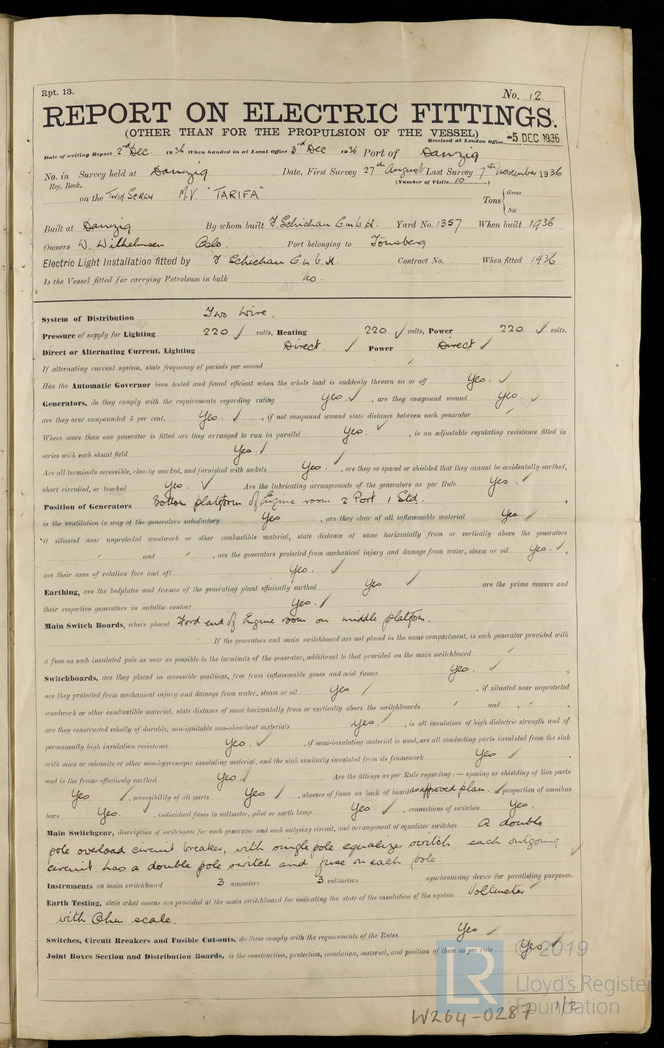 Rpt. 13.
No. 12
REPORT ON ELECTRIC FITTINGS.
(OTHER THAN FOR THE PROPULSION OF THE VESSEL)
Received at London Office -5 DEC 1936
Date of writing Report 2nd Dec 1936 When handed in at Local Office 3rd Dec 1936 Port of Danzig
No. in Survey held at Danzig Date, First Survey 27th August Last Survey 7th November 1936
Reg. Book. (Number of Visits 10)
on the Twin Screw M.V. "TARIFA" Tons { Gross
Net
Built at Danzig By whom built F. Schichau G.m.b.H. Yard No. 1357 When built 1936
Owners W. Wilhelmsen Oslo. Port belonging to Tönsberg
Electric Light Installation fitted by F. Schichau G.m.b.H. Contract No. When fitted 1936
Is the Vessel fitted for carrying Petroleum in bulk no.
System of Distribution Two wire.
Pressure of supply for Lighting 220 ✓ volts, Heating 220 ✓ volts, Power 220 ✓ volts.
Direct or Alternating Current, Lighting Direct ✓ Power Direct ✓
If alternating current system, state frequency of periods per second
Has the Automatic Governor been tested and found efficient when the whole load is suddenly thrown on or off Yes. ✓
Generators, do they comply with the requirements regarding rating Yes ✓ , are they compound wound Yes. ✓
are they over compounded 5 per cent. Yes. ✓ , if not compound wound state distance between each generator
Where more than one generator is fitted are they arranged to run in parallel Yes. ✓ , is an adjustable regulating resistance fitted in
series with each shunt field Yes. ✓
Are all terminals accessible, clearly marked, and furnished with sockets Yes. ✓ , are they so spaced or shielded that they cannot be accidentally earthed,
short circuited, or touched Yes. ✓ Are the lubricating arrangements of the generators as per Rule Yes. ✓
Position of Generators Bottom platform of Engine room 2 Port 1 Stbd.
is the ventilation in way of the generators satisfactory Yes , are they clear of all inflammable material Yes ✓
if situated near unprotected woodwork or other combustible material, state distance of same horizontally from or vertically above the generators
and , are the generators protected from mechanical injury and damage from water, steam or oil Yes. ✓,
are their axes of rotation fore and aft Yes. ✓
Earthing, are the bedplates and frames of the generating plant efficiently earthed Yes ✓ are the prime movers and
their respective generators in metallic contact Yes. ✓
Main Switch Boards, where placed Ford end of Engine room on middle platform.
If the generators and main switchboard are not placed in the same compartment, is each generator provided with
a fuse on each insulated pole as near as possible to the terminals of the generator, additional to that provided on the main switchboard
Switchboards, are they placed in accessible positions, free from inflammable gases and acid fumes Yes. ✓
are they protected from mechanical injury and damage from water, steam or oil Yes ✓ , if situated near unprotected
woodwork or other combustible material, state distance of same horizontally from or vertically above the switchboards and
are they constructed wholly of durable, non-ignitable non-absorbent materials Yes. ✓ , is all insulation of high dielectric strength and of
permanently high insulation resistance Yes. ✓ , if semi-insulating material is used, are all conducting parts insulated from the slab
with mica or micanite or other non-hygroscopic insulating material, and the slab similarly insulated from its framework Yes ✓
and is the frame effectively earthed Yes. ✓ . Are the fittings as per Rule regarding :— spacing or shielding of live parts
Yes ✓ , accessibility of all parts Yes ✓ , absence of fuses on back of board as approved plan. ✓ proportion of omnibus
bars Yes. ✓ , individual fuses to voltmeter, pilot or earth lamp Yes ✓ , connections of switches Yes.
Main Switchgear, description of switchgear for each generator and each outgoing circuit, and arrangement of equalizer switches A double
pole overload circuit breaker, with single pole equalizer switch. each outgoing
circuit has a double pole switch and fuse on each pole
Instruments on main switchboard 3 ammeters 3 voltmeters synchronising device for paralleling purposes.
Earth Testing, state what means are provided at the main switchboard for indicating the state of the insulation of the system Voltmeter
with Ohm scale.
Switches, Circuit Breakers and Fusible Cut-outs, do these comply with the requirements of the Rules Yes ✓
Joint Boxes Section and Distribution Boards, is the construction, protection, insulation, material, and position of these as per rule Yes ✓
© 2019
LR
Lloyd's Register
Foundation
W264-0287 1/2